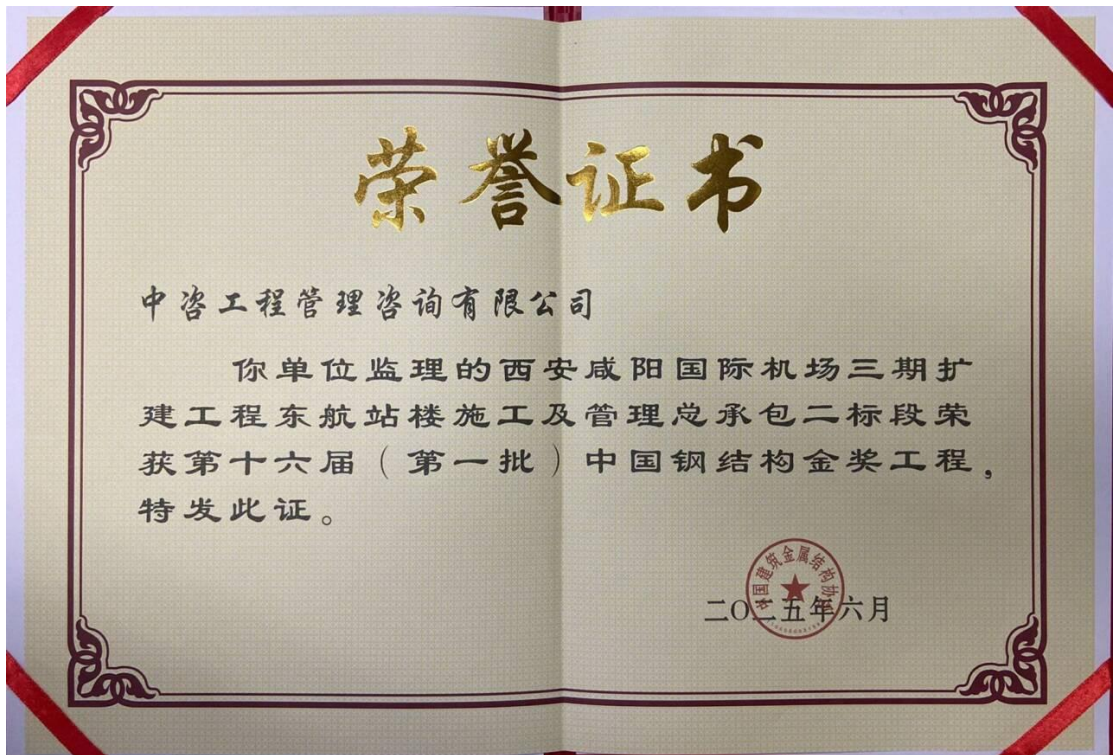 荣誉证书
中咨工程管理咨询有限公司
你单位监理的西安咸阳国际机场三期扩
建工程东航站楼施工及管理总承包二标段荣
获第十六届（第一批）中国钢结构金奖工程，
特发此证。
中国建筑金属结构协会
二〇二五年六月